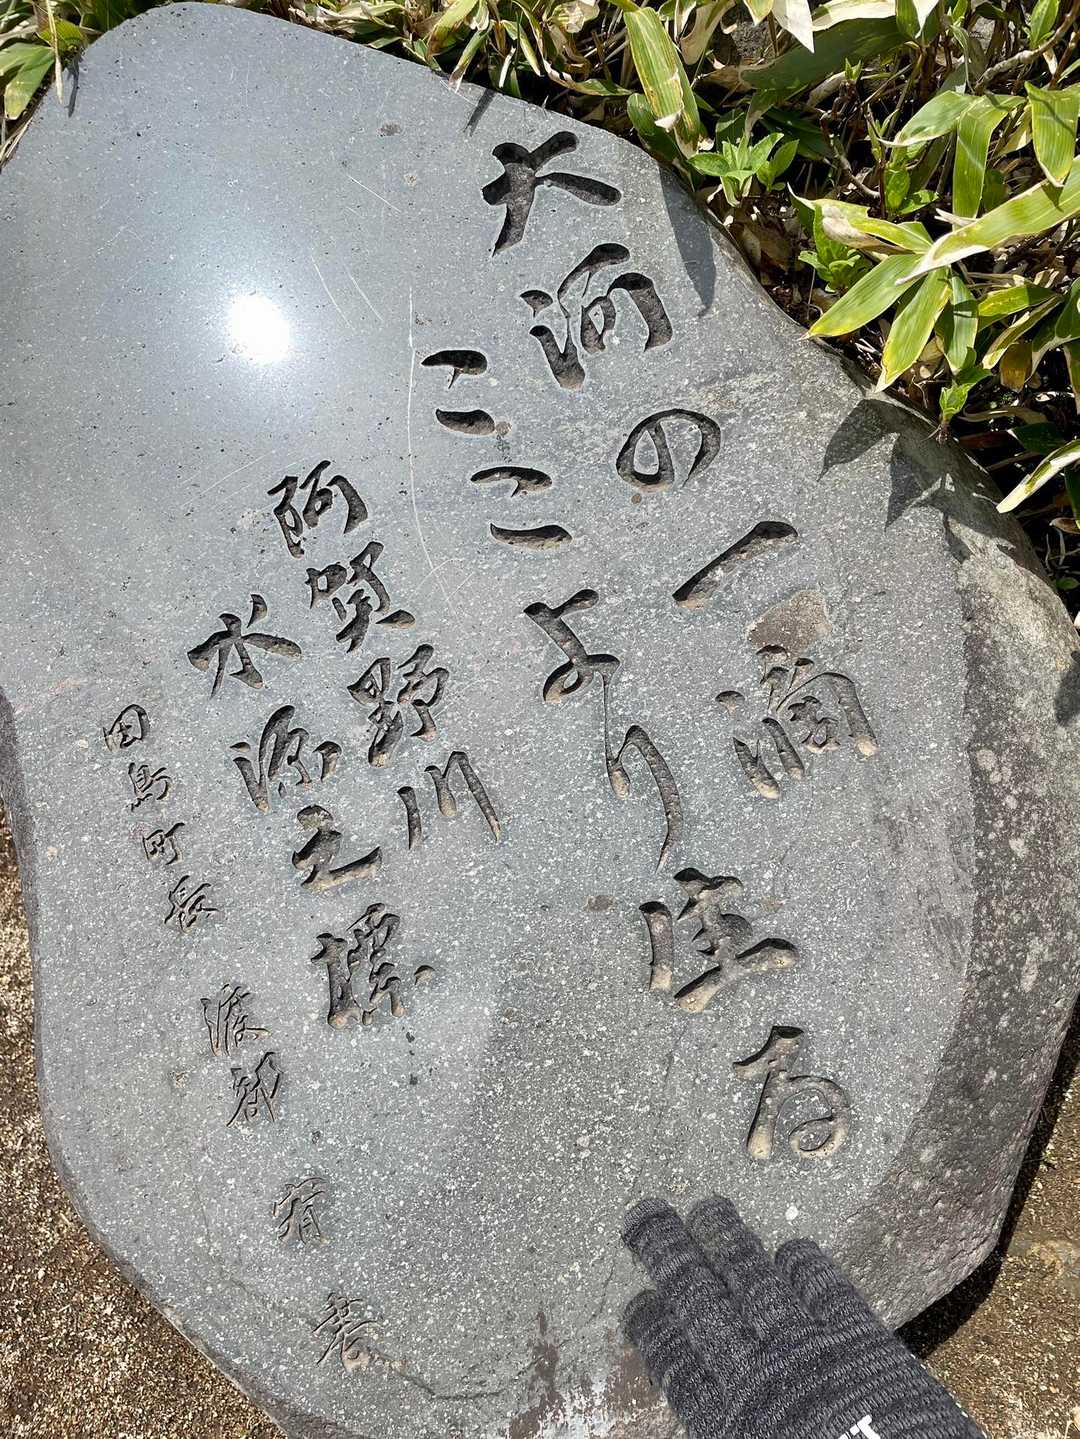 大河の一滴
ここより る
阿賀野川
水源之標
田島町長 渡部